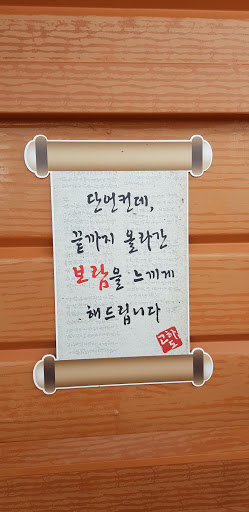 단언컨대,
끝까지 올라간
보람을 느끼게
해드립니다
고하도